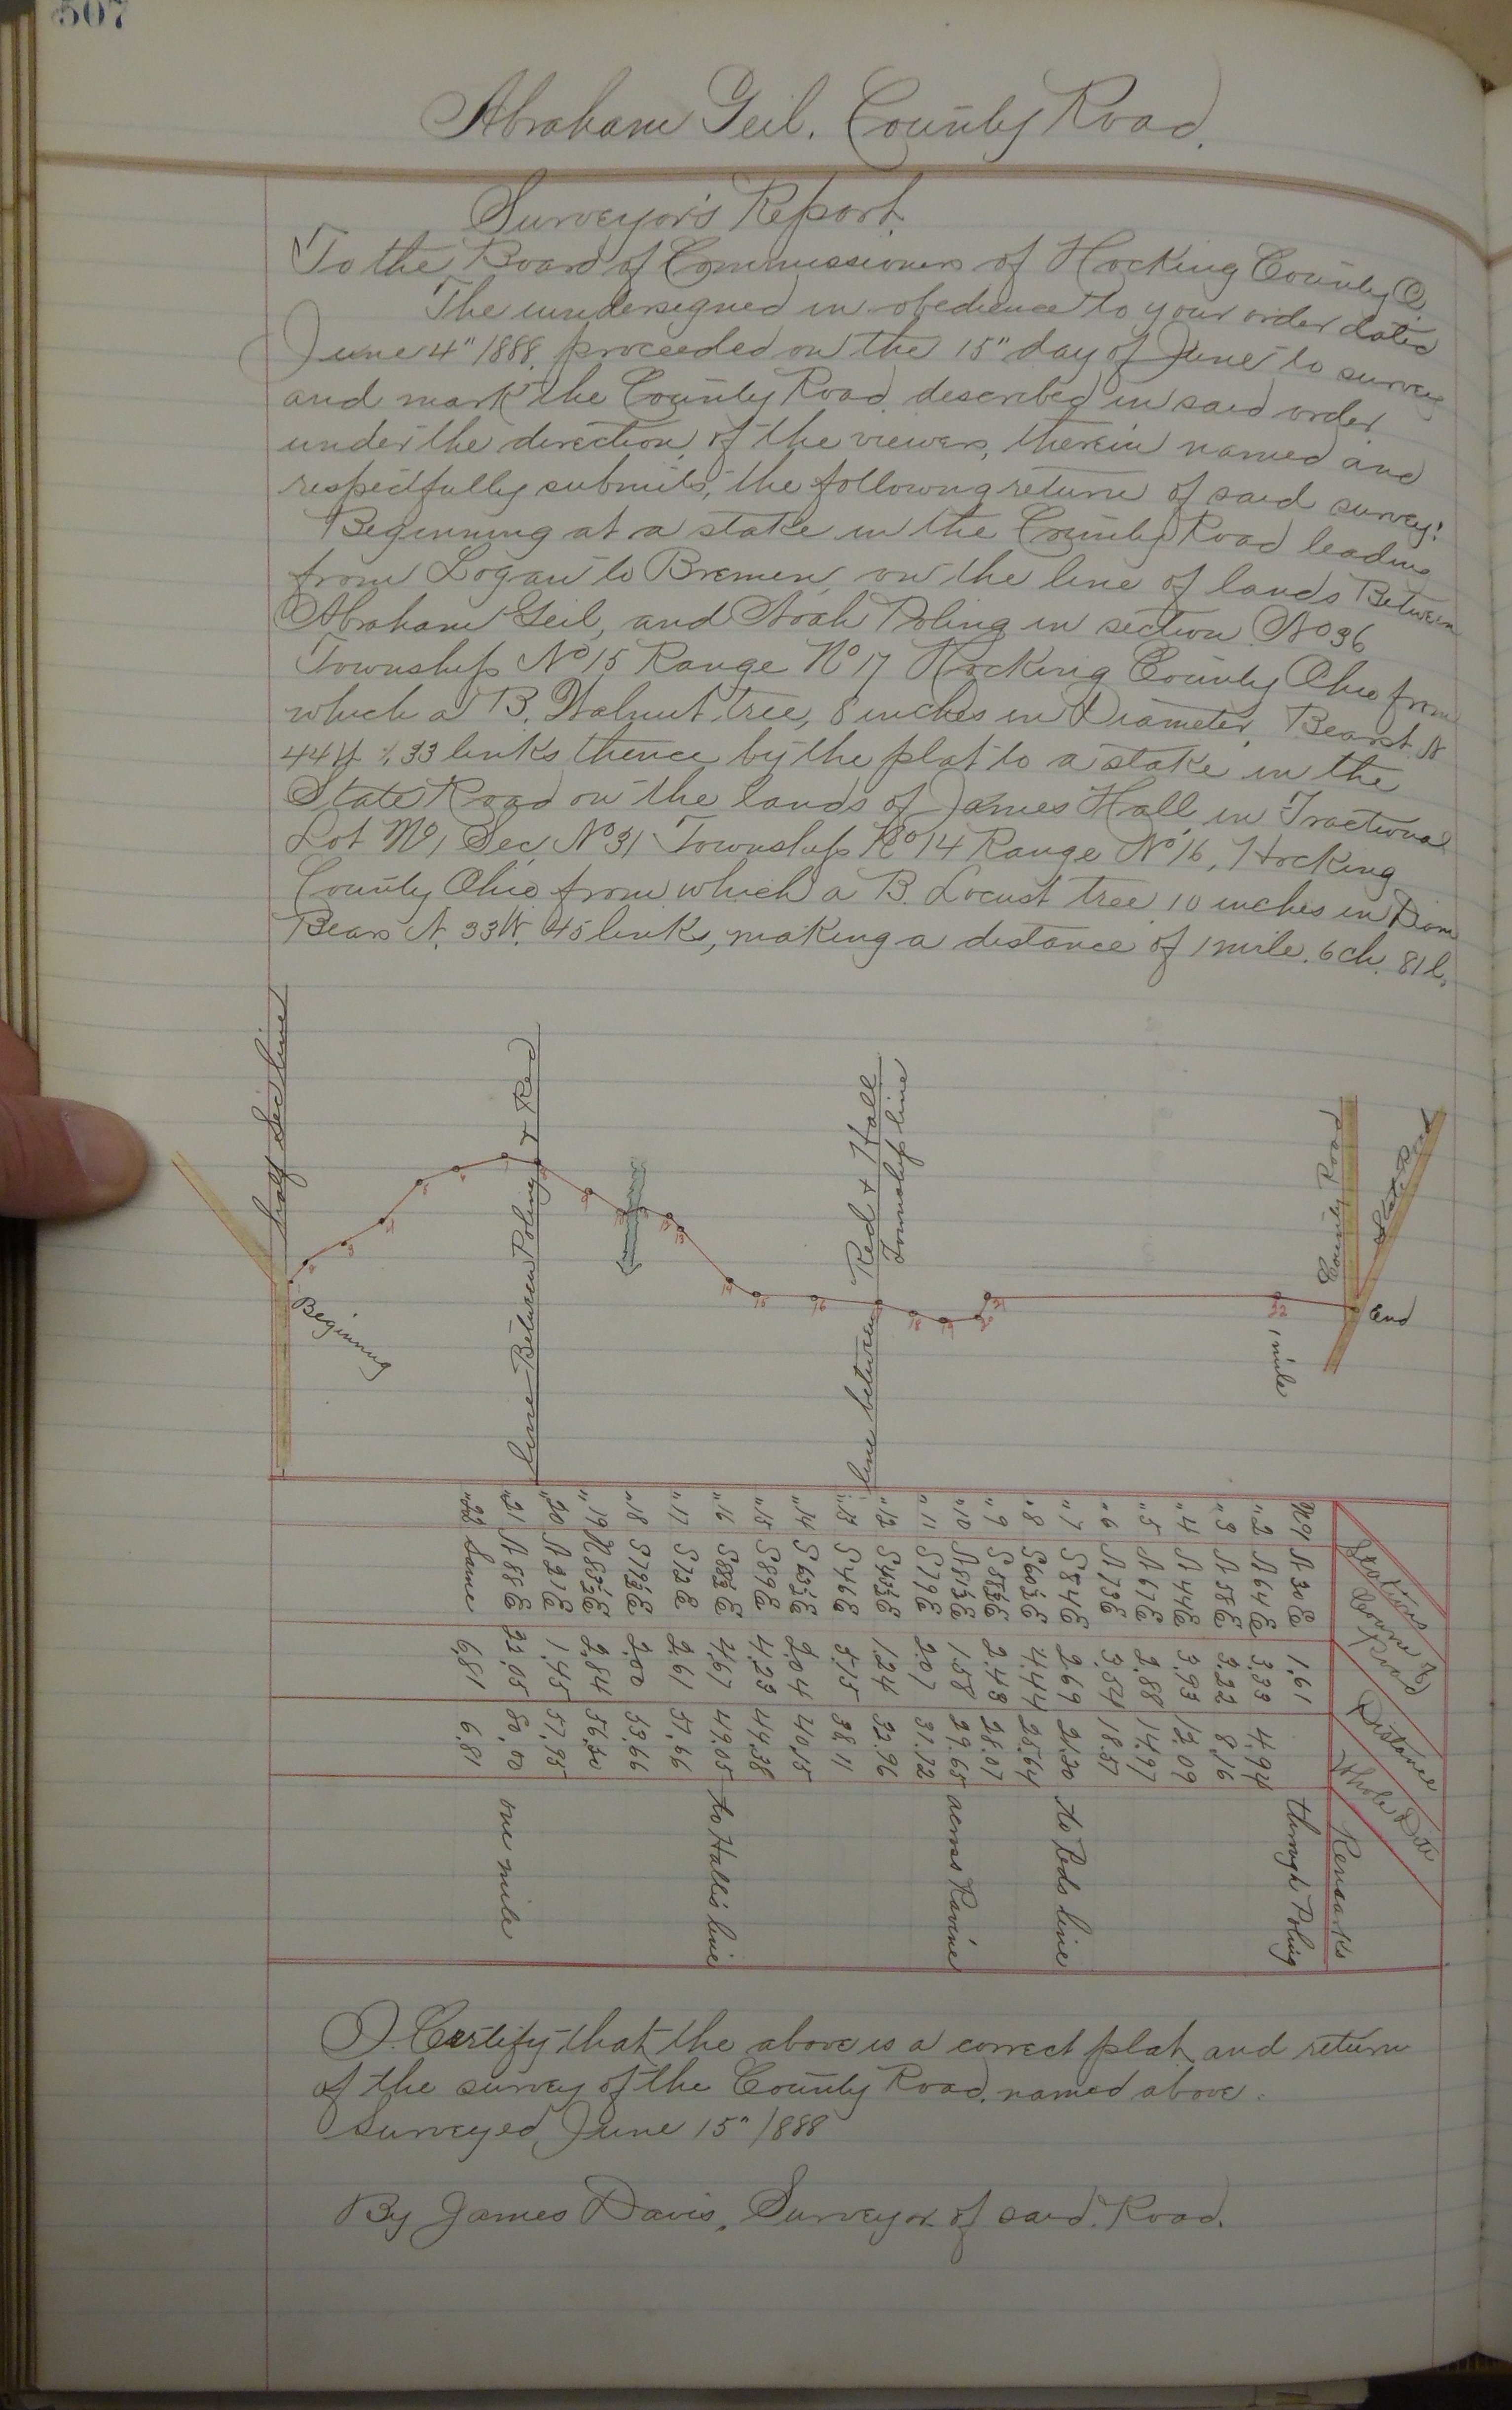 507
Abraham Geil. County Road.
Surveyor's Report.
To the Board of Commissioners of Hocking County O.
The undersigned in obedience to your order dated
June 4" 1888. proceeded on the 15" day of June to survey
and mark the County Road described in said order
under the direction, of the viewers, therein named and
respectfully submits, the following return of said survey:
Beginning at a stake in the County Road leading
from Logan to Bremen, on the line of lands Between
Abraham Geil, and Noah Poling in section No 36
Township No 15 Range No 17 Hocking County Ohio from
which a B. Walnut tree, 8 inches in Diameter, Bears N
44 W 33 links thence by the plat to a stake in the
State Road on the lands of James Hall in Fractional
Lot No 1 Sec, No 31 Township No 14 Range No 16, Hocking
County Ohio from which a B. Locust tree 10 inches in Diam
Bears N. 33 W. 45 links, making a distance of 1 mile. 6 ch. 81 l.
half Sec line
Beginning
line Between Poling + Red
line between Red + Hall
Township line
County Road
State Road
End
1 mile
Stations Course of Road Distance Whole Dist Remarks
No 1 N 30 E 1,61 through Poling
" 2 N 64 E 3,33 4,94
" 3 N 58 E 3,22 8,16
" 4 N 44 E 3,93 12,09
" 5 N 67 E 2,88 14,97
" 6 N 73 E 3,54 18.57
" 7 S 84 E 2,69 21.20 to Reds line
" 8 S 60½ E 4,44 25,64
" 9 2,43 28,07
" 10 1.58 29,65 across Ravine
" 11 S 79 E 2.07 31.72
" 12 1.24 32.96
" 13 S 46 E 5,15 38,11
" 14 S 63½ E 2,04 40,15
" 15 S 89 E 4,23 44,38
" 16 4,67 49,05 to Hall's line
" 17 S 72 E 2,61 51,66
" 18 S 79½ E 2,00 53,66
" 19 2,84 56,50
" 20 N 21 E 1,45 57,95
" 21 N 88 E 22,05 80,00 one mile
" 22 Same 6,81 6.81
I Certify that the above is a correct plat and return
of the survey of the County Road, named above.
Surveyed June 15" 1888
By James Davis, Surveyor of said Road.